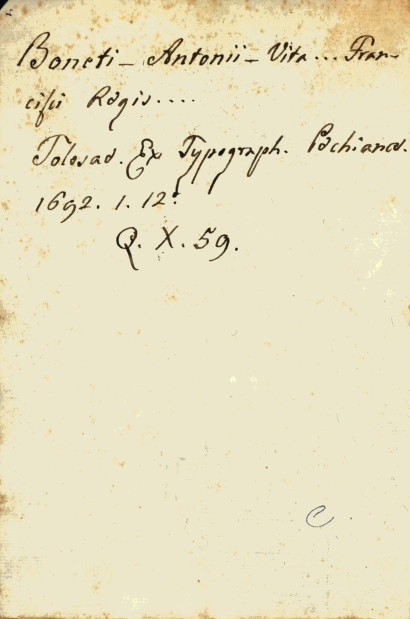 Boneti - Antonii - Vita ... Fran-
cisci Regis ....
Tolosae. Ex Typograph. Pechiana.
1692. 1. 12º
Q. X. 59.
C